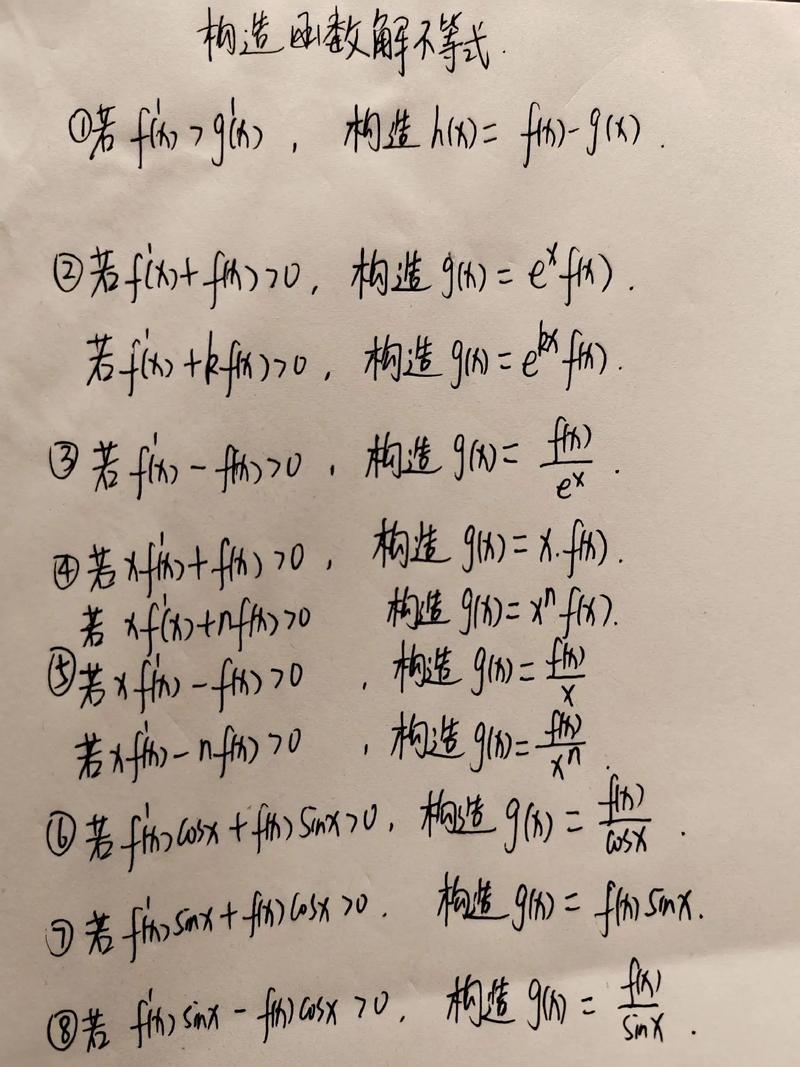 构造函数解不等式.
①若 f'(x) > g'(x) , 构造 h(x) = f(x) - g(x) .
②若 f'(x) + f(x) > 0 , 构造 g(x) = e^x f(x) .
若 f'(x) + k f(x) > 0 , 构造 g(x) = e^{kx} f(x) .
③若 f'(x) - f(x) > 0 , 构造 g(x) = \frac{f(x)}{e^x} .
④若 x f'(x) + f(x) > 0 , 构造 g(x) = x · f(x) .
若 x f'(x) + n f(x) > 0 构造 g(x) = x^n f(x) .
⑤若 x f'(x) - f(x) > 0 , 构造 g(x) = \frac{f(x)}{x}
若 x f'(x) - n f(x) > 0 , 构造 g(x) = \frac{f(x)}{x^n} .
⑥若 f'(x) cosx + f(x) sinx > 0 , 构造 g(x) = \frac{f(x)}{cosx} .
⑦若 f'(x) sinx + f(x) cosx > 0 . 构造 g(x) = f(x) sinx .
⑧若 f'(x) sinx - f(x) cosx > 0 . 构造 g(x) = \frac{f(x)}{sinx} .